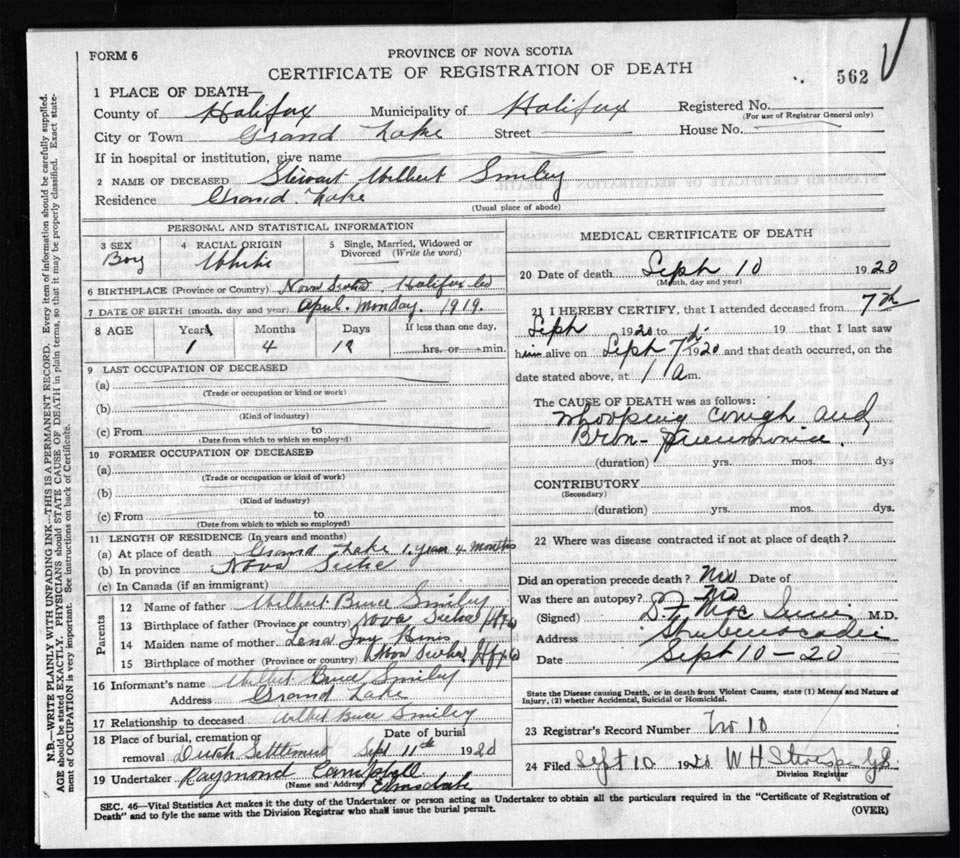 FORM 6
PROVINCE OF NOVA SCOTIA
CERTIFICATE OF REGISTRATION OF DEATH
562
1 PLACE OF DEATH—
County of Halifax Municipality of Halifax Registered No.
(For use of Registrar General only)
City or Town Grand Lake Street House No.
If in hospital or institution, give name
2 NAME OF DECEASED Stewart Wilbert Smiley
Residence Grand Lake
(Usual place of abode)
PERSONAL AND STATISTICAL INFORMATION
3 SEX Boy
4 RACIAL ORIGIN White
5 Single, Married, Widowed or Divorced (Write the word)
6 BIRTHPLACE (Province or Country) Nova Scotia Halifax Co
7 DATE OF BIRTH (month, day and year) April. Monday. 1919.
8 AGE Years Months Days If less than one day,
1 4 hrs. or min.
9 LAST OCCUPATION OF DECEASED
(a)
(Trade or occupation or kind or work)
(b)
(Kind of industry)
(c) From to
(Date from which to which so employed)
10 FORMER OCCUPATION OF DECEASED
(a)
(Trade or occupation or kind of work)
(b)
(Kind of industry)
(c) From to
(Date from which to which so employed)
11 LENGTH OF RESIDENCE (In years and months)
(a) At place of death Grand Lake 1. year 4 months
(b) In province Nova Scotia
(c) In Canada (if an immigrant)
Parents
12 Name of father Wilbert Bruce Smiley
13 Birthplace of father (Province or country) Nova Scotia Hfx Co
14 Maiden name of mother Lena Jay
15 Birthplace of mother (Province or country) Nova Scotia Hfx Co
16 Informant's name Wilbert Bruce Smiley
Address Grand Lake
17 Relationship to deceased Wilbert Bruce Smiley
18 Place of burial, cremation or removal Dutch Settlement
Date of burial Sept 11th 1920
19 Undertaker Raymond Campbell
(Name and Address) Elmsdale
MEDICAL CERTIFICATE OF DEATH
20 Date of death Sept 10 1920
(Month, day and year)
21 I HEREBY CERTIFY, that I attended deceased from 7th
Sept 1920 to 19 that I last saw
him alive on Sept 7th 1920 and that death occurred, on the
date stated above, at 1 a m.
The CAUSE OF DEATH was as follows:
Whooping cough and
Bron- Pneumonia.
(duration) yrs. mos. dys
CONTRIBUTORY
(Secondary)
(duration) yrs. mos. dys.
22 Where was disease contracted if not at place of death?
Did an operation precede death? No Date of
Was there an autopsy? No
(Signed) M.D.
Address Shubenacadie
Date Sept 10-20
State the Disease causing Death, or in death from Violent Causes, state (1) Means and Nature of
Injury, (2) whether Accidental, Suicidal or Homicidal.
23 Registrar's Record Number No 10
24 Filed Sept 10 1920 W H
Division Registrar
SEC. 46—Vital Statistics Act makes it the duty of the Undertaker or person acting as Undertaker to obtain all the particulars required in the "Certificate of Registration of
Death" and to fyle the same with the Division Registrar who shall issue the burial permit.
(OVER)
N.B.—WRITE PLAINLY WITH UNFADING INK—THIS IS A PERMANENT RECORD. Every item of information should be carefully supplied.
AGE should be stated EXACTLY. PHYSICIANS should STATE CAUSE OF DEATH in plain terms, so that it may be properly classified. Exact statement of OCCUPATION is very important. See instructions on back of Certificate.